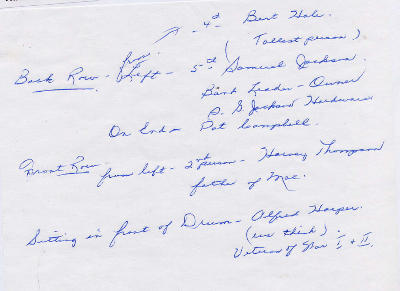 - 4th Bert Hale.
(Tallest person)
Back Row - from Left - 5th Samuel Jackson.
Band Leader - Owner
S. G. Jackson Hardware
On End - Pat Campbell.
Front Row.
from left - 2nd person - Harvey Thompson
father of Mac.
Sitting in front of Drum - Alfred Harper.
(we think).
Veteran of War I + II.